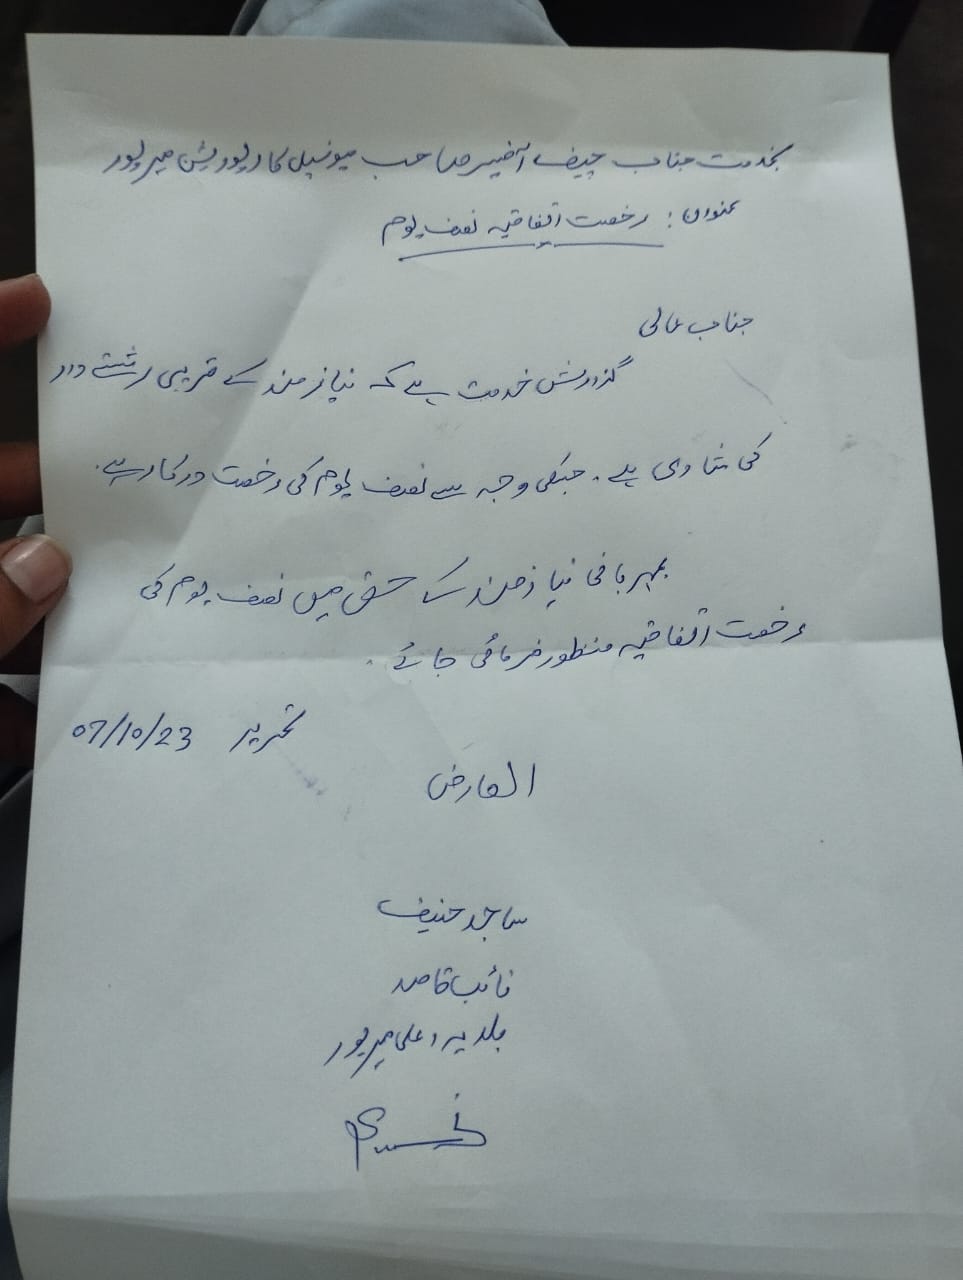 بخدمت جناب چیف آفیسر صاحب میونسپل کارپوریشن میرپور
عنوان: رخصت اتفاقیہ نصف یوم
جناب عالی
گزارش خدمت ہے کہ نیازمند کے قریبی رشتے دار
کی شادی ہے۔ جسکی وجہ سے نصف یوم کی رخصت درکار ہے۔
بمہربانی نیازمند کے حق میں نصف یوم کی
رخصت اتفاقیہ منظور فرمائی جائے۔
تحریر 07/10/23
العارض
ساجد حنیف
نائب قاصد
بلدیہ اعلی میرپور